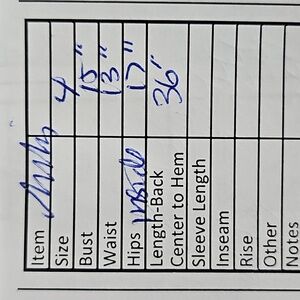 Item
Size 4
Bust 15"
Waist 13"
Hips inside 17"
Length-Back
Center to Hem 36"
Sleeve Length
Inseam
Rise
Other
Notes